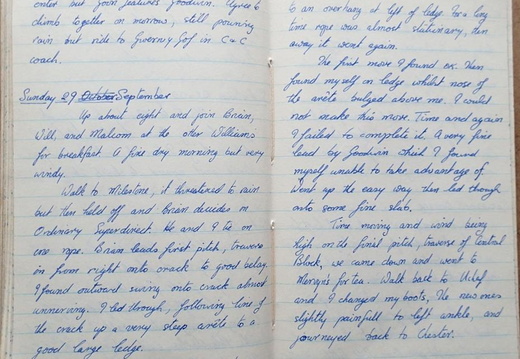 enter but soon features Goodwin. Agree to
climb together on morrow, still pouring
rain but ride to Gwern y Gof in C & C
coach.
Sunday 29 October September
Up about eight and join Brian,
Will, and Malcom at the other Williams
for breakfast. A fine dry morning but very
windy.
Walk to Milestone, it threatened to rain
but then held off and Brian decides on
Ordinary Superdirect. He and I tie on
one rope. Brian leads first pitch, traverse
in from right onto crack to good belay.
I found outward swing onto crack almost
unnerving. I led through, following line of
the crack up a very steep arête to a
good large ledge.
to an overhang at left of ledge. For a long
time rope was almost stationary, then
away it went again.
The first move I found ok. Then
found myself on ledge whilst nose of
the arête bulged above me. I could
not make this move. Time and again
I failed to complete it. A very fine
lead by Goodwin which I found
myself unable to take advantage of.
Went up the easy way then led though
onto some fine slab.
Time moving and wind being
high on the final pitch, traverse of Central
Block, we came down and went to
for tea. Walk back to
and I changed my boots, the new ones
slightly painfull to left ankle, and
journeyed back to Chester.